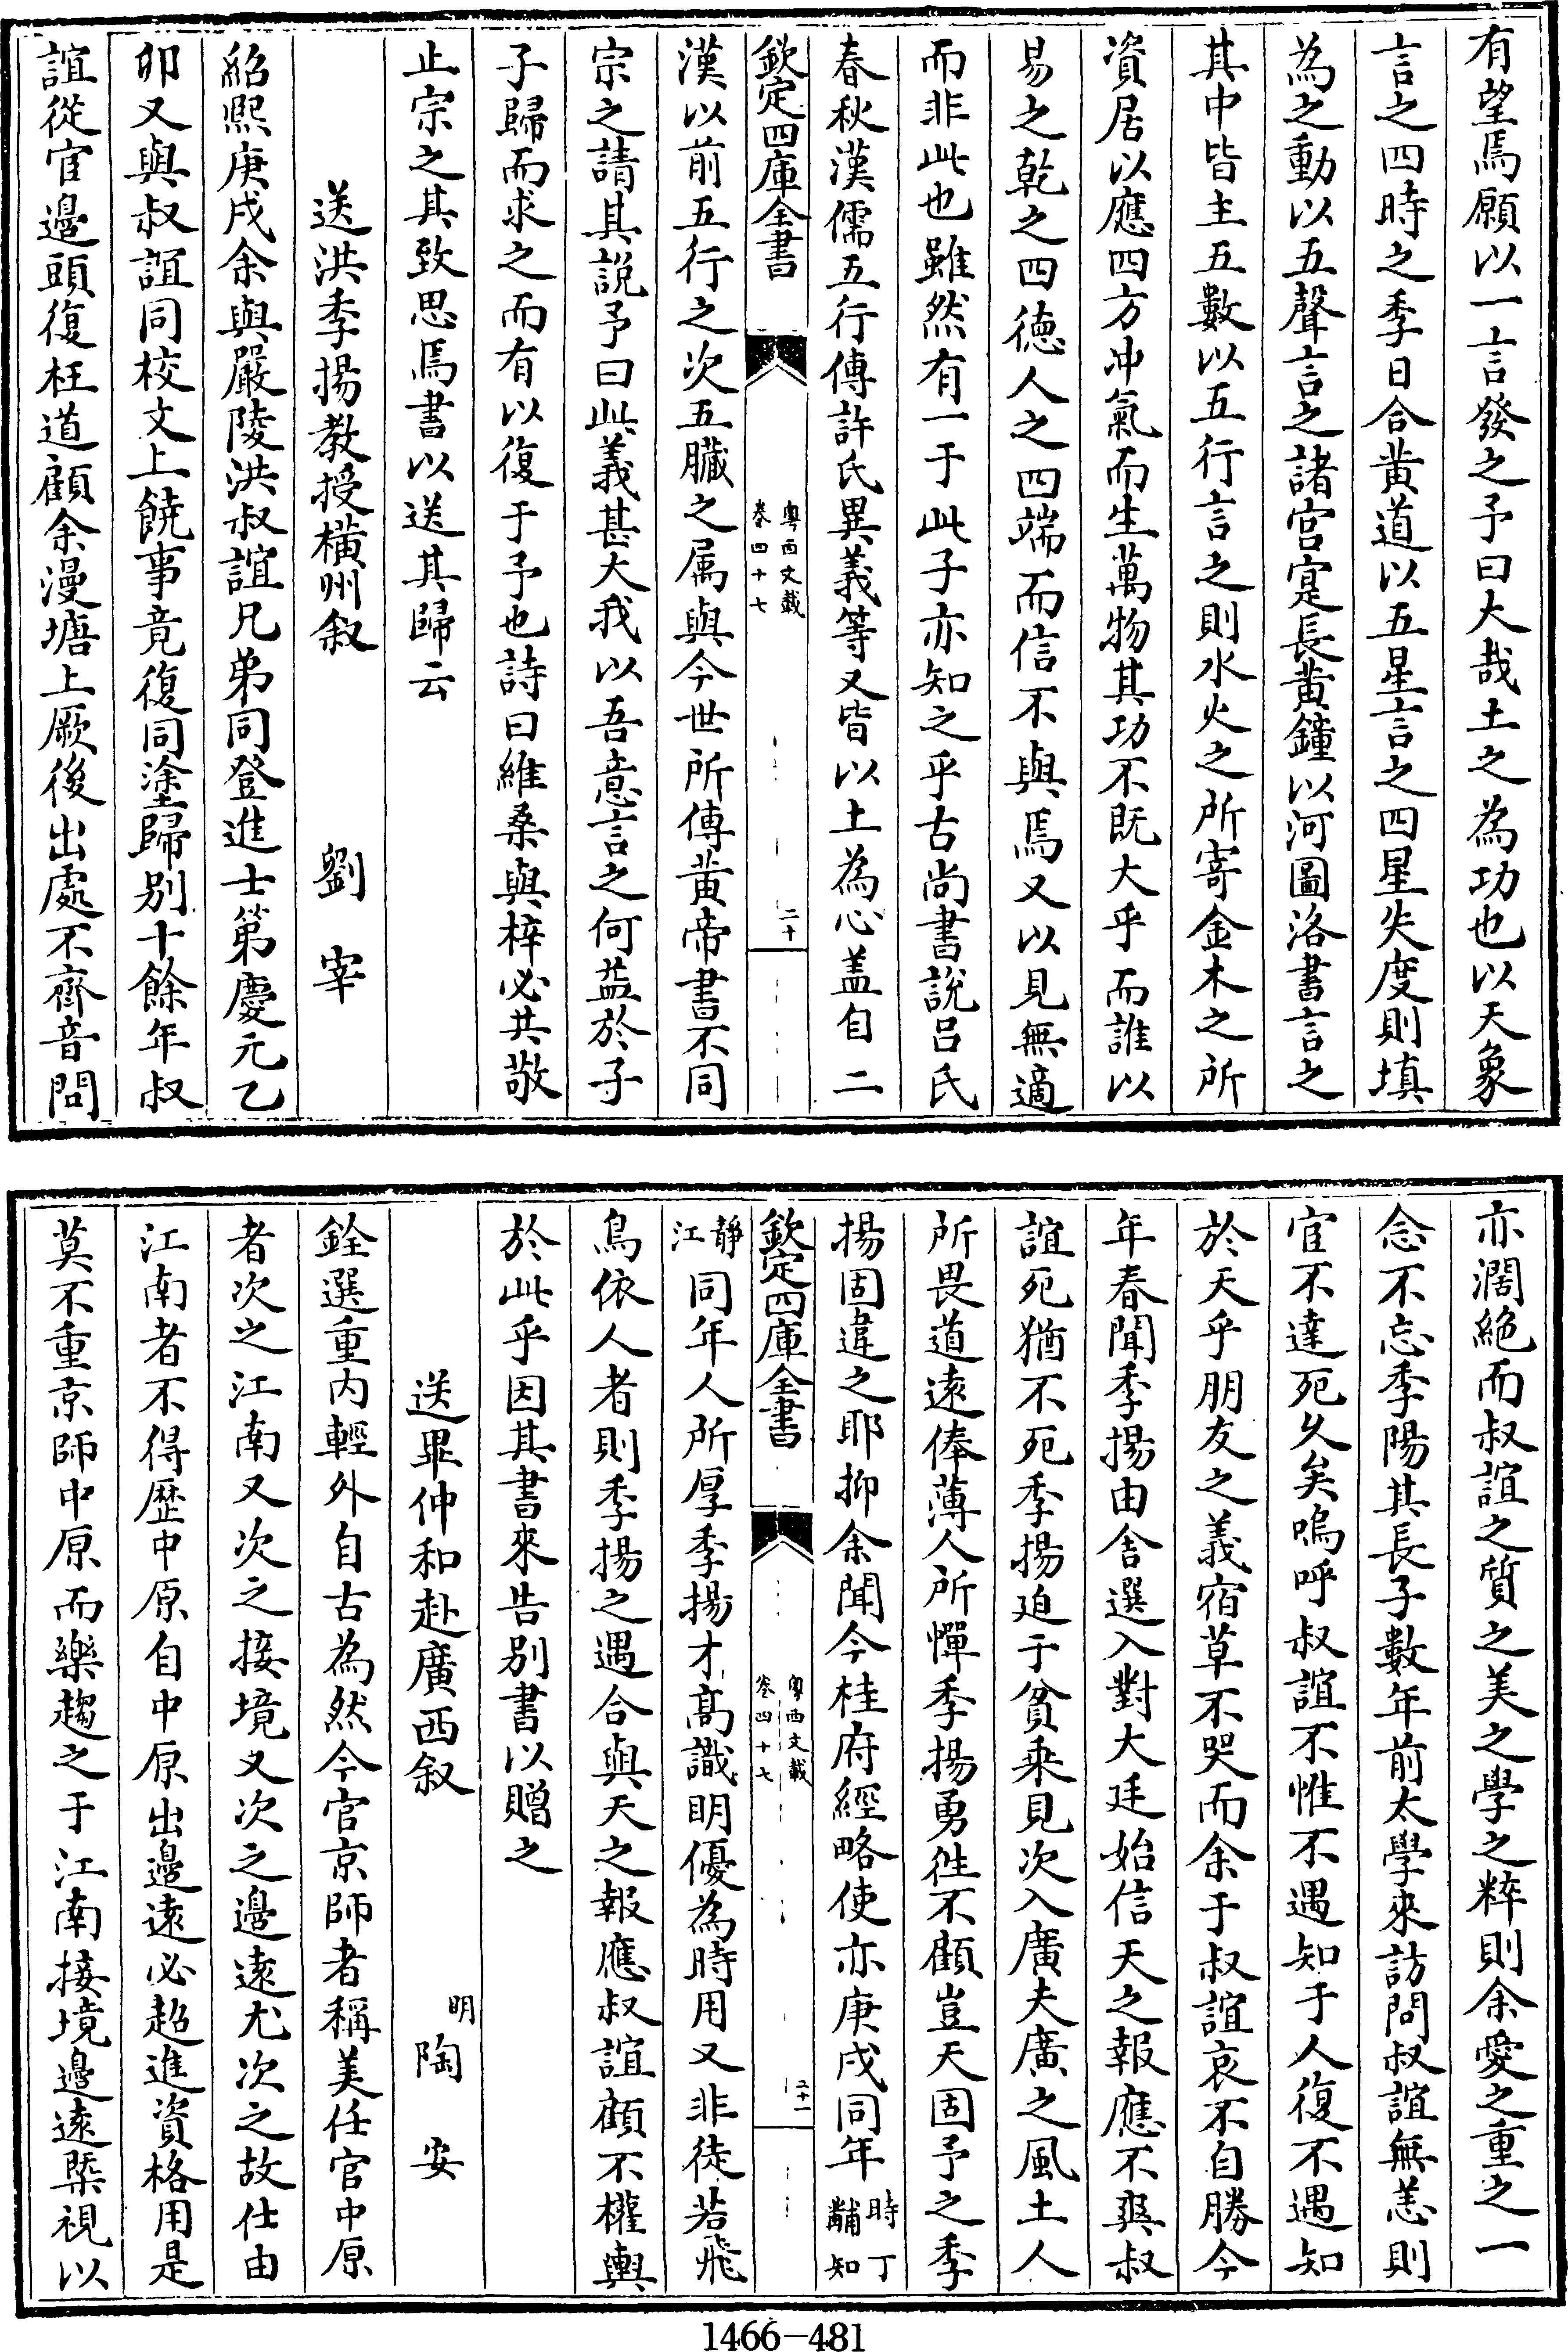 有望焉願以一言發之予曰大哉土之為功也以天象
言之四時之季日合黄道以五星言之四星失度則填
為之動以五聲言之諸宫寔長黄鐘以河圖洛書言之
其中皆主五數以五行言之則水火之所寄金木之所
資居以應四方冲氣而生萬物其功不既大乎而誰以
易之乾之四德人之四端而信不與焉又以見無適
而非此也雖然有一于此子亦知之乎古尚書說吕氏
春秋漢儒五行傳許氏異義等又皆以土為心盖自二
欽定四庫全書
粤西文載
卷四十七
二十
漢以前五行之次五臟之属與今世所傳黄帝書不同
宗之請其説予曰此義甚大我以吾意言之何益於子
子歸而求之而有以復于予也詩曰維桑與梓必共敬
止宗之其致思焉書以送其歸云
送洪季揚教授横州叙 劉宰
紹熙庚戌余與嚴陵洪叔誼兄弟同登進士第慶元乙
卯又與叔誼同校文上饒事竟復同塗歸别十餘年叔
誼從宦邊頭復枉道顧余漫塘上厥後出處不齊音問
亦濶絶而叔誼之質之美之學之粹則余愛之重之一
念不忘季陽其長子數年前太學來訪問叔誼無恙則
宦不達死久矣嗚呼叔誼不惟不遇知于人復不遇知
於天乎朋友之義宿草不哭而余于叔誼哀不自勝今
年春聞季揚由舎選入對大廷始信天之報應不爽叔
誼死猶不死季揚迫于貧乘見次入廣夫廣之風土人
所畏道遠俸薄人所憚季揚勇徃不顧豈天固予之季
揚固違之耶抑余聞今桂府經略使亦庚戌同年時丁黼知
欽定四庫全書
粤西文載
卷四十七
二十一
静江同年人所厚季揚才髙識明優為時用又非徒若飛
鳥依人者則季揚之遇合與天之報應叔誼顧不權輿
於此乎因其書來告别書以贈之
送畢仲和赴廣西叙 明陶安
銓選重内輕外自古為然今官京師者稱美任官中原
者次之江南又次之接境又次之邊遠尤次之故仕由
江南者不得歴中原自中原出邊遠必超進資格用是
莫不重京師中原而樂趨之于江南接境邊遠槩視以
1466-481